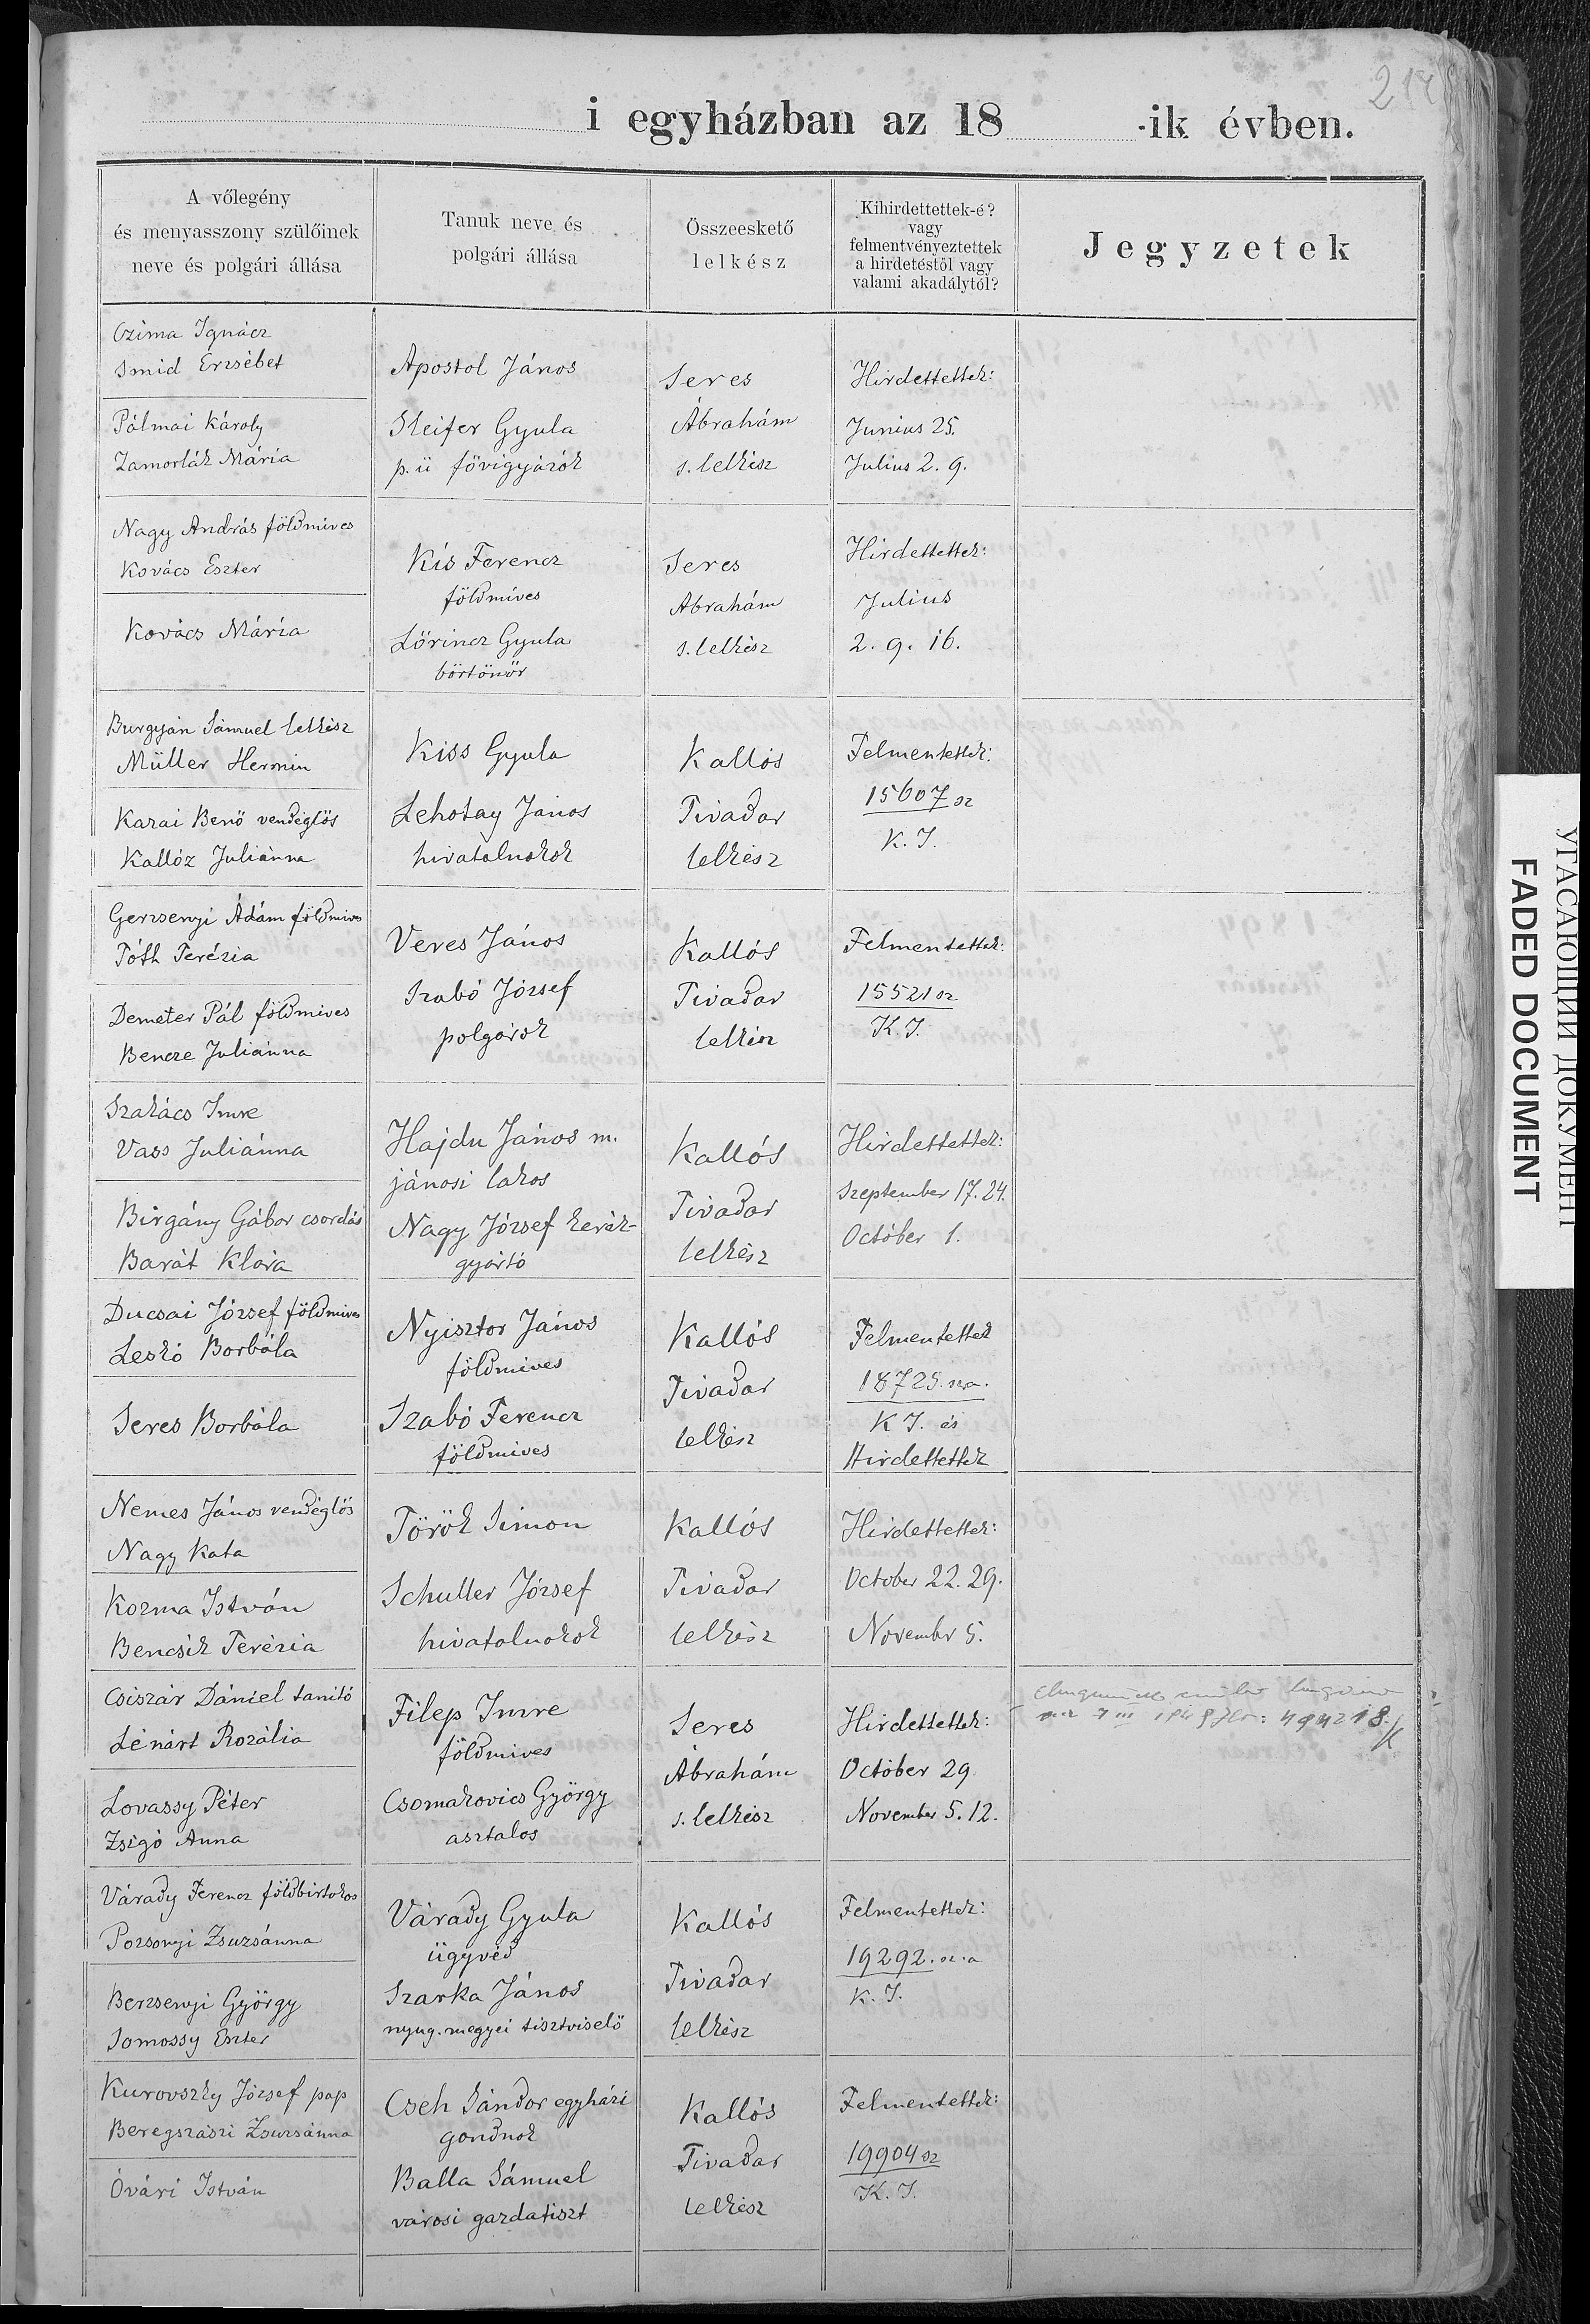 214
i egyházban az 18 -ik évben.
A vőlegény
és menyasszony szülőinek
neve és polgári állása
Tanuk neve és
polgári állása
Összeeskető
lelkész
Kihirdettettek-é?
vagy
felmentvényeztettek
a hirdetéstől vagy
valami akadálytól?
Jegyzetek
Czima Ignácz
Smid Erzsébet
Pálmai Károly
Zamorlák Mária
Apostol János
Steifer Gyula
p. ü fővigyázók
Seres
Ábrahám
s. lelkész
Hirdettettek:
Junius 25.
Julius 2. 9.
Nagy András földmives
Kovács Eszter
Kovács Mária
Kis Ferencz
földmíves
Lőrincz Gyula
börtönőr
Seres
Ábrahám
s. lelkész
Hirdettettek:
Julius
2. 9. 16.
Burgyán Sámuel lelkész
Müller Hermin
Kazai Benő vendéglős
Kallóz Juliánna
Kiss Gyula
Lehotay János
hivatalnokok
Kallós
Tivadar
lelkész
Felmentettek:
15607 sz
K. I.
Gerzsenyi Ádám földmives
Tóth Terézia
Demeter Pál földmives
Bencze Juliánna
Veres János
Szabó József
polgárok
Kallós
Tivadar
lelkész
Felmentettek:
15521 sz
K. I.
Szakács Imre
Vass Juliánna
Birgány Gábor csordás
Barát Klára
Hajdu János m.
jánosi lakos
Nagy József kerék-
gyártó
Kallós
Tivadar
lelkész
Hirdettettek:
Szeptember 17. 24.
Október 1.
Ducsai József földmives
Leskó Borbála
Seres Borbála
Nyisztor János
földmives
Szabó Ferencz
földmives
Kallós
Tivadar
lelkész
Felmentettek
18725. sz a.
K I. és
Hirdettettek
Nemes János vendéglős
Nagy Kata
Kozma István
Bencsik Terézia
Török Simon
Schuller József
hivatalnokok
Kallós
Tivadar
lelkész
Hirdettettek:
October 22. 29.
Novembr 5.
Csiszár Dániel tanító
Lénárt Rozália
Lovassy Péter
Zsigó Anna
Filep Imre
földmives
Csomakovics György
asztalos
Seres
Ábrahám
s. lelkész
Hirdettettek:
October 29.
November 5. 12.
Várady Ferencz földbirtokos
Pozsonyi Zsuzsánna
Berzsenyi György
Somossy Eszter
Várady Gyula
ügyvéd
Szarka János
nyug. megyei tisztviselő
Kallós
Tivadar
lelkész
Felmentettek:
19292. sz. a
K. I.
Kurovszky József pap
Beregszászi Zsuzsánna
Óvári István
Cseh Sándor egyházi
gondnok
Balla Sámuel
városi gazdatiszt
Kallós
Tivadar
lelkész
Felmentettek:
19904 sz
K. I.
УГАСАЮЩИЙ ДОКУМЕНТ
FADED DOCUMENT